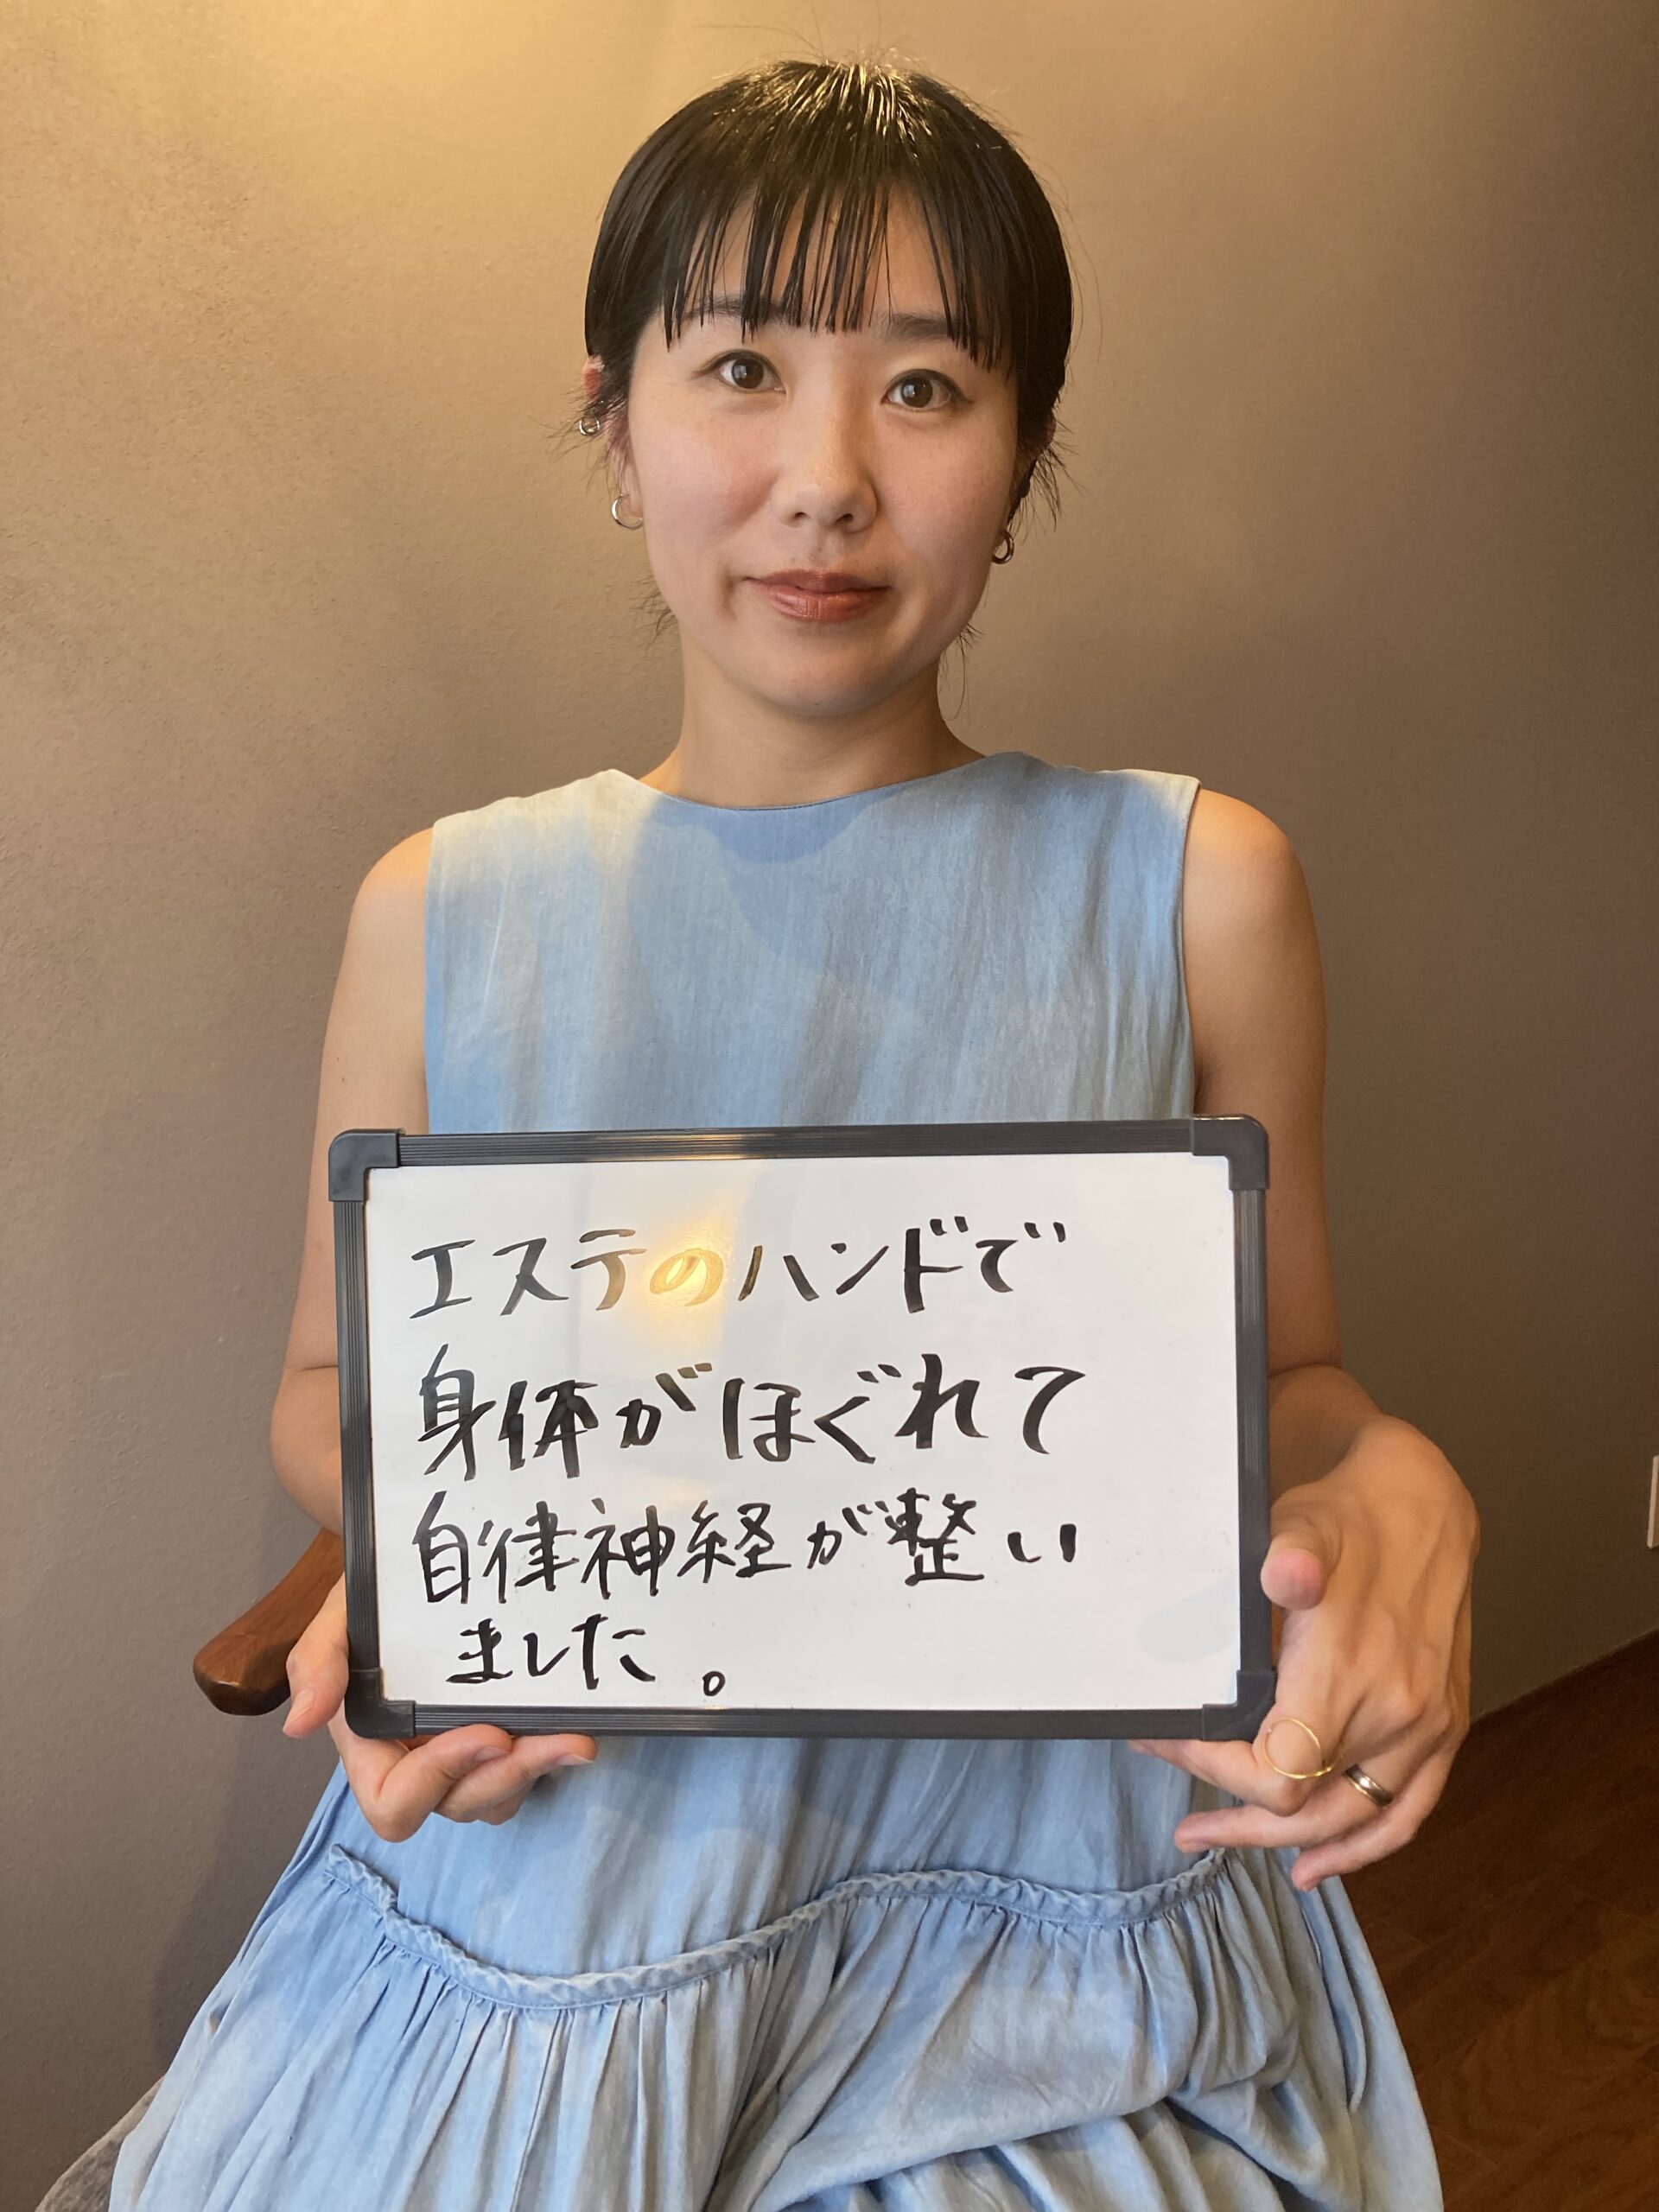 エステのハンドで
身体がほぐれて
自律神経が整い
ました。